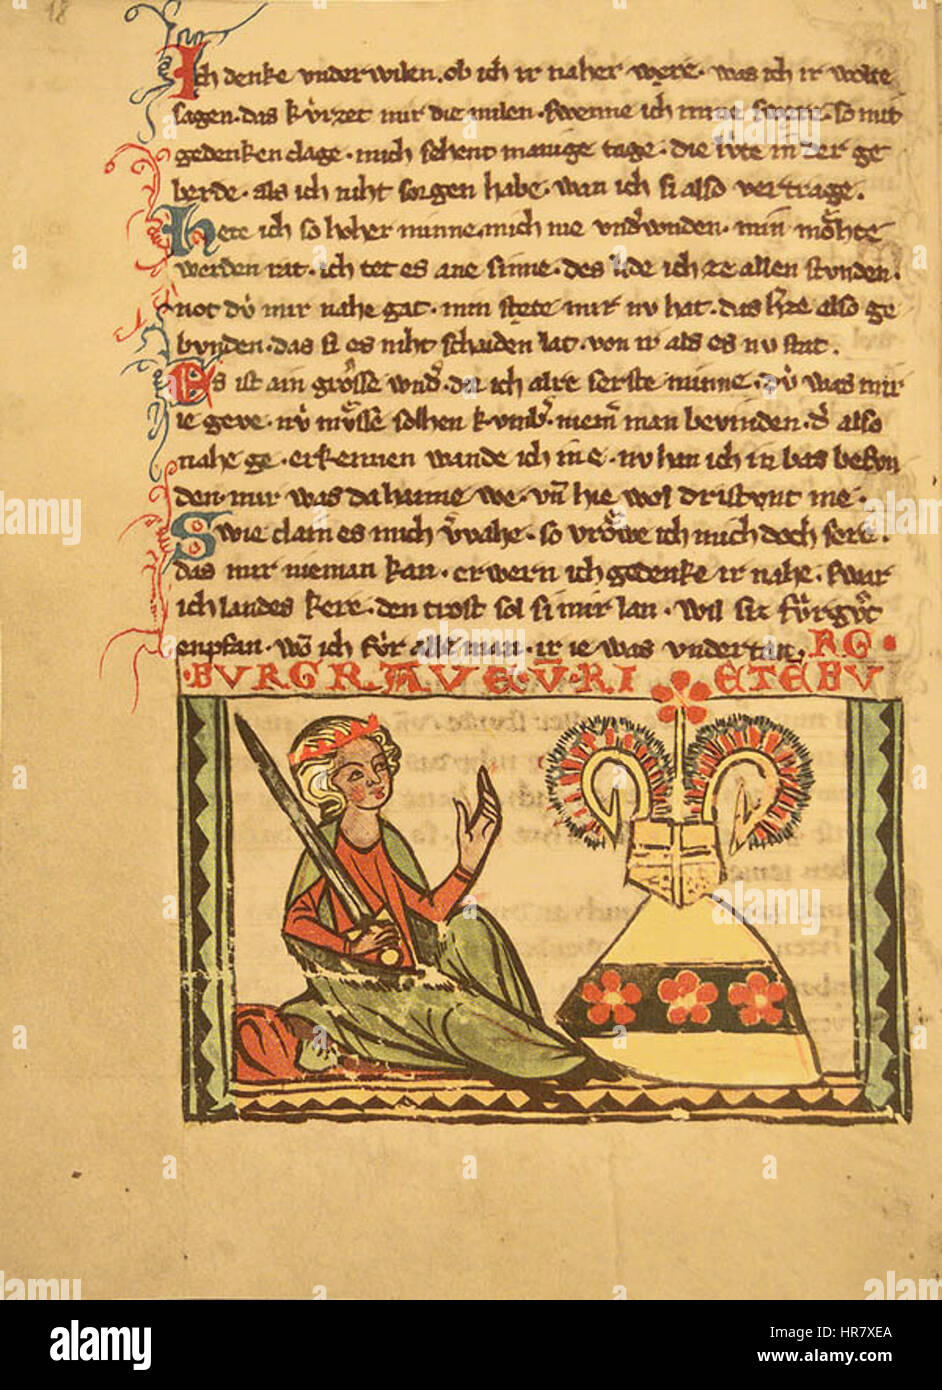 18
Ich denke vnder wilen. ob ich ir naher were. was ich ir wolte
sagen. das kv́rzet mir die milen. swenne ich mine swere. so mit
gedenken clage. mich sehent manige tage. die lv́te in der ge
berde. als ich niht sorgen habe. wan ich si also vertrage.
Hete ich so hoher minne. mich nie vnd̾wnden. min mo᷄hte
werden rat. ich tet es ane sinne. des lide ich ze allen stvnden.
not dv́ mir nahe gat. min stete mir nv hat. das h̾ze also ge
bvnden. das si es niht schaiden lat. von ir als es nv stat.
Es ist ain grosse wnd̾. die ich alre serste minne. dv́ was mir
ie geve. nv́ mv̊sse solhen kvmb̾. niem̾ man bevinden. d̾ also
nahe ge. erkennen wande ich in e. nv han ich in bas bevn
den. mir was da haime we. vn̄ hie wol dristvnt me.
Swie clain es mich v̾vahe. so vrowe ich mich doch sere.
das mir nieman kan. erwern ich gedenke ir nahe. swar
ich landes kere. den trost sol si mir lan. wil sis fv́r gv̊t
enpfan. ich fv́r alle man. ir ie was vndertan. RG.
BVRGRAVE. V̄. RIETEBV
alamy stock photo
alamy
Image ID: HR7XEA
www.alamy.com